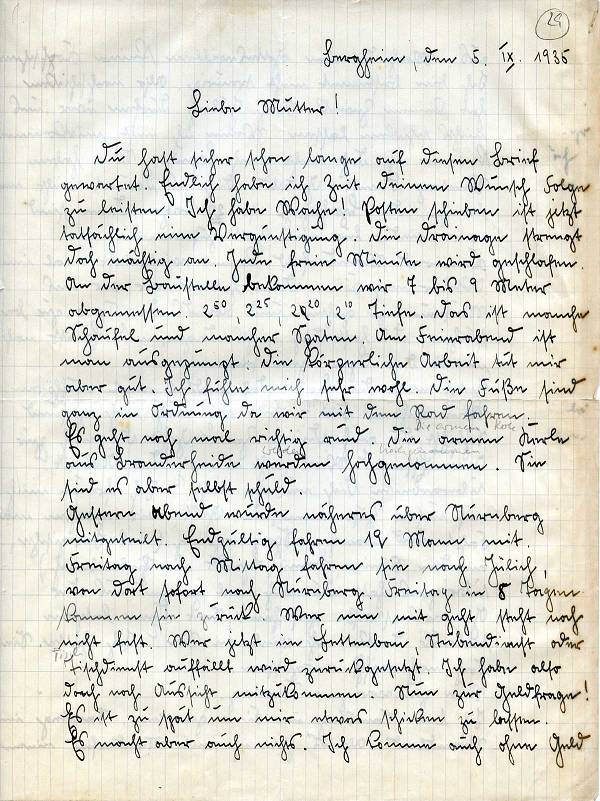 29
Bergheim, den 5. IX. 1935
Liebe Mutter!
Du hast sicher schon lange auf diesen Brief
gewartet. Endlich habe ich Zeit deinem Wunsch Folge
zu leisten. Ich habe Wache! Posten schieben ist jetzt
tatsächlich eine Vergünstigung. Die Drainage strengt
doch mächtig an. Jede freie Minute wird geschlafen.
An der Baustelle bekommen wir 7 bis 9 Meter
abgemessen. 2⁵⁰, 2²⁵, 2²⁰, 2¹⁰ Tiefe. Das ist manche
Schaufel und mancher Spaten. Am Feierabend ist
man ausgepumpt. Die körperliche Arbeit tut mir
aber gut. Ich fühle mich sehr wohl. Die Füße sind
ganz in Ordnung da wir mit dem Rad fahren.
Die armen Kerle
Es geht noch mal richtig rund. Die armen Kerle
hochgenommen
aus werden hochgenommen. Sie
sind es aber selbst schuld.
Gestern Abend wurde näheres über Nürnberg
mitgeteilt. Endgültig fahren 12 Mann mit.
Freitag nach Mittag fahren sie nach Jülich,
von dort sofort nach Nürnberg. Freitag in 8 Tagen
kommen sie zurück. Wer nun mit geht steht noch
nicht fest. Wer jetzt im Bettenbau, Stubendienst oder
Tisch
Tischdienst auffällt wird zurückgesetzt. Ich habe also
doch noch Aussicht mitzukommen. Nun zur Geldfrage!
Es ist zu spät um mir etwas schicken zu lassen.
Es macht aber auch nichts. Ich komme auch ohne Geld